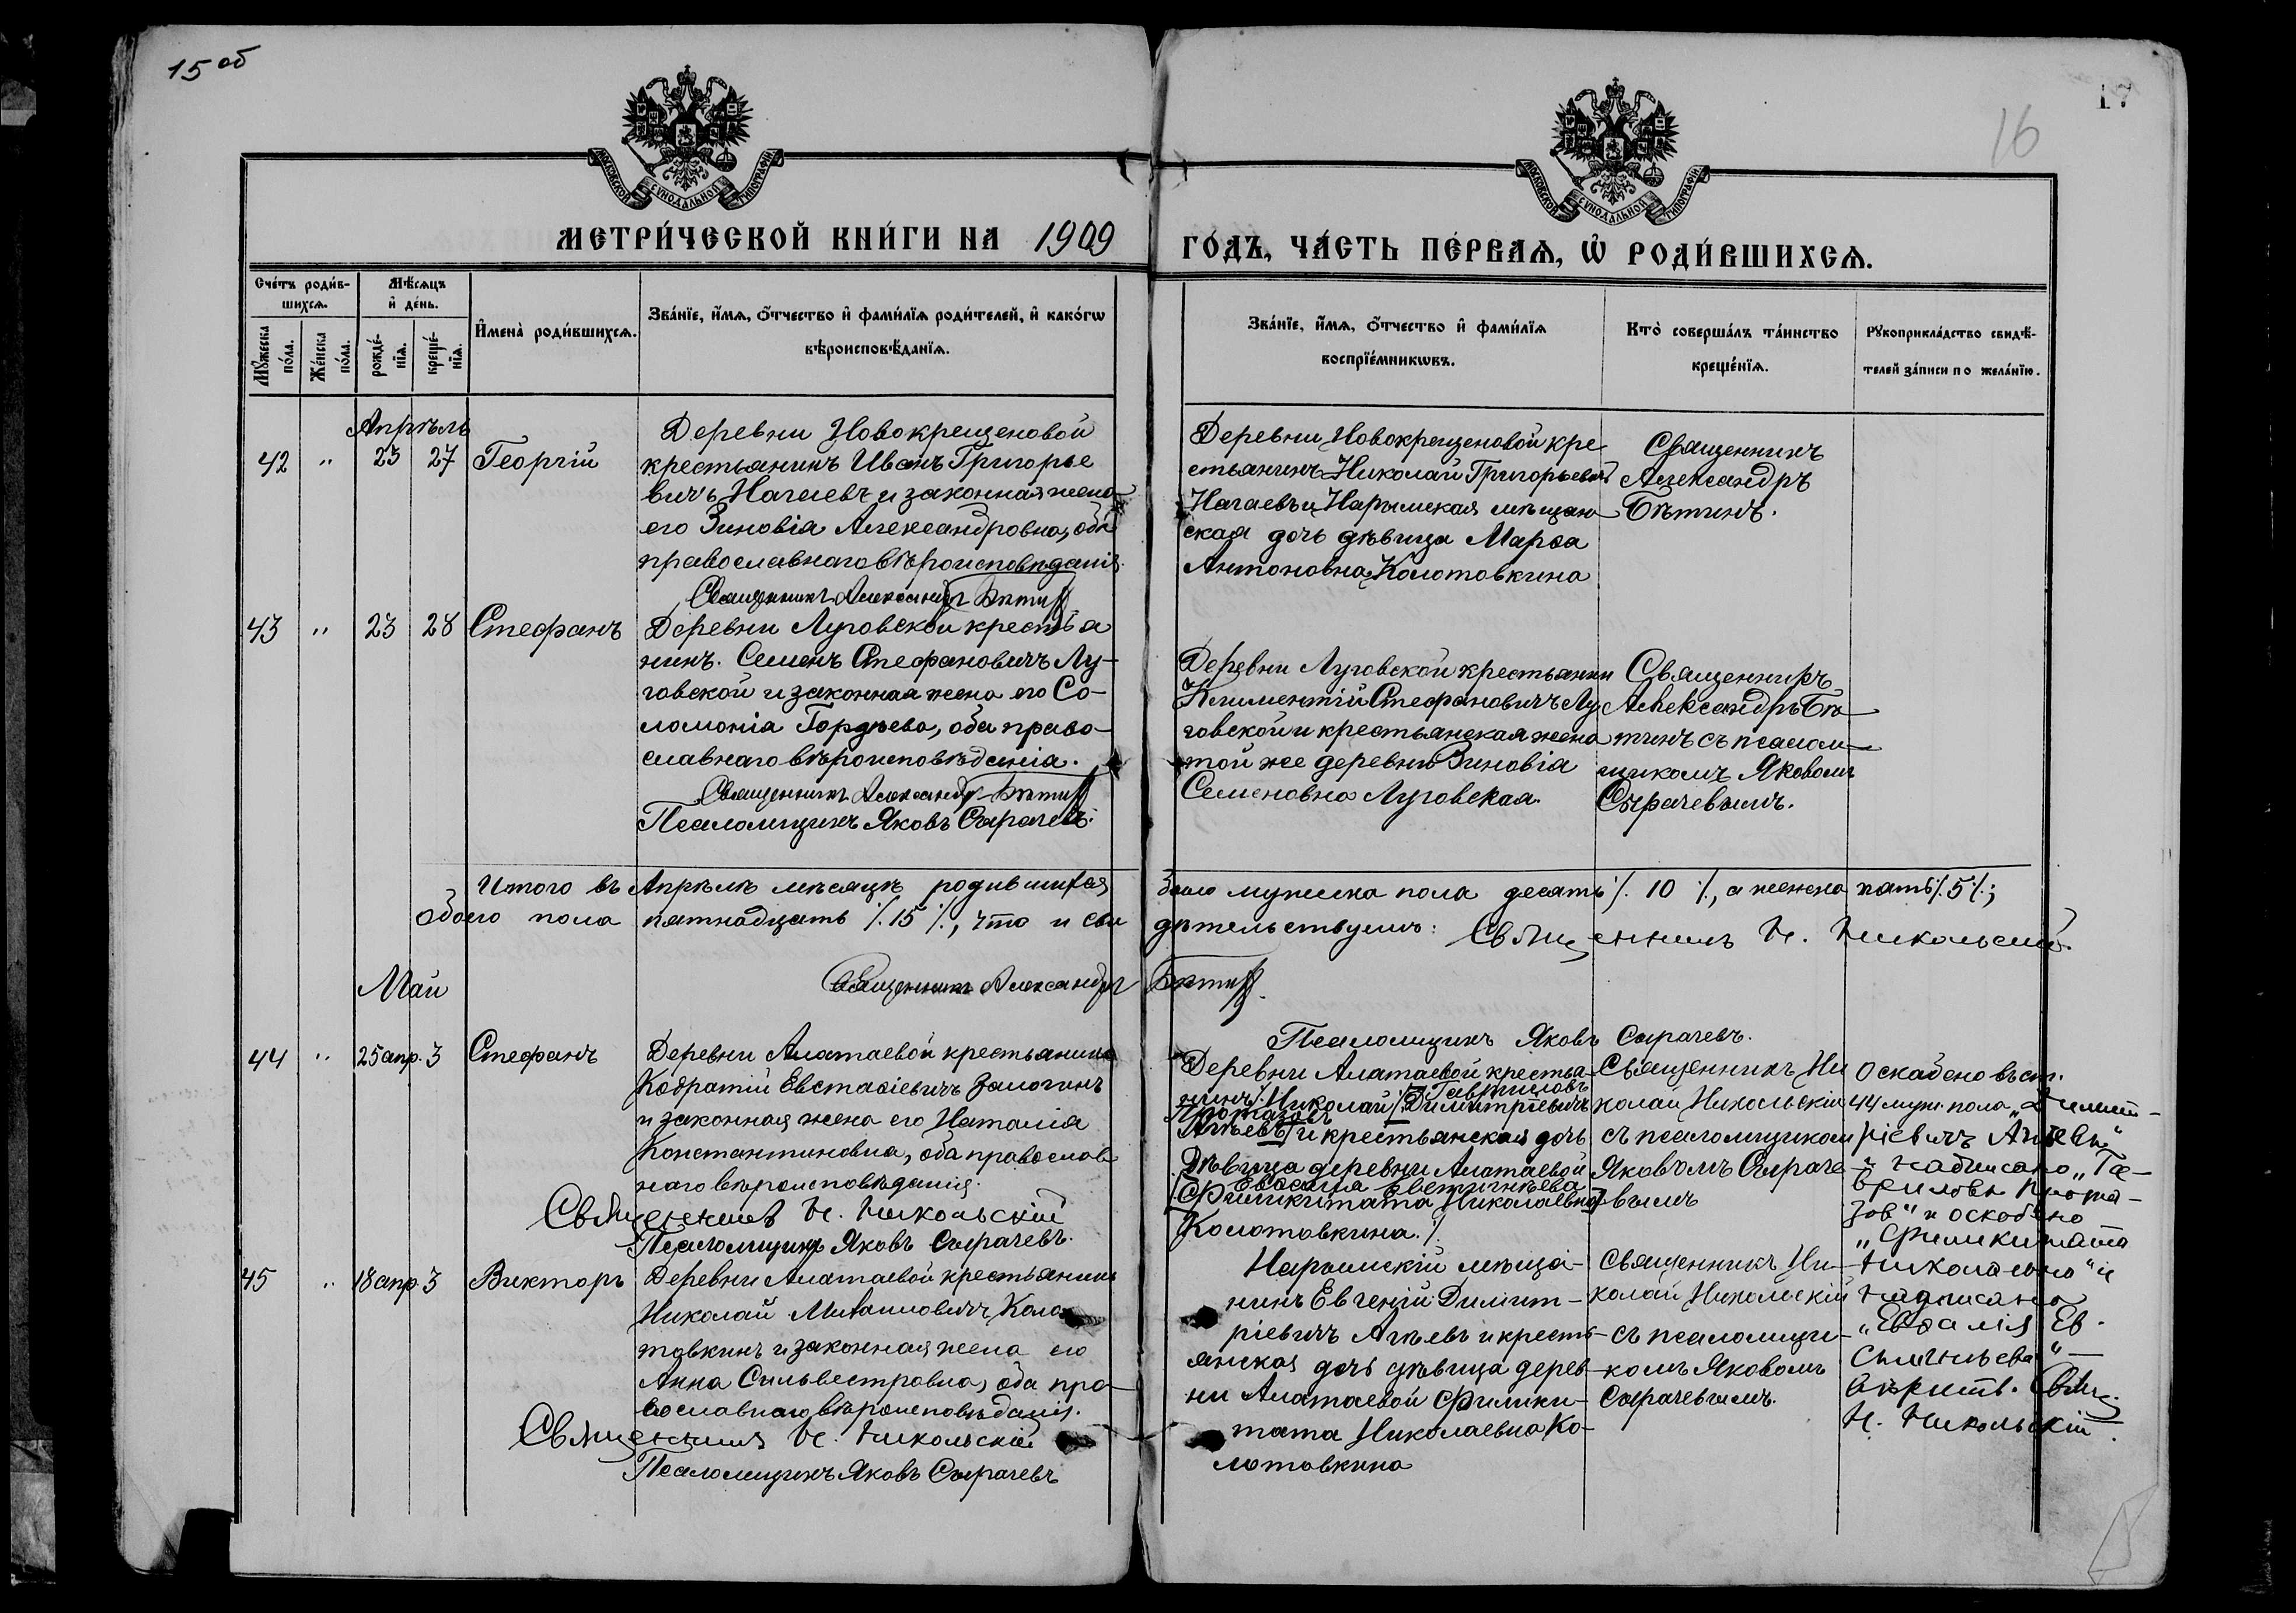 15 об
16
17
МОСКОВСКОЙ СУНОДАЛЬНОЙ ТИПОГРАФІИ
МОСКОВСКОЙ СУНОДАЛЬНОЙ ТИПОГРАФІИ
МЕТРИ́ЧЕСКОЙ КНИ́ГИ НА 1909
ГО́ДЪ, ЧА́СТЬ ПЕ́РВАѦ, Ѡ҆ РОДИ́ВШИХСѦ.
Сче́тъ роди́в-
шихсѧ.
Мꙋ́жеска
по́ла.
Же́нска
по́ла.
Мѣ́сѧцъ
и҆ де́нь.
рожде́-
нїѧ.
креще́-
нїѧ.
И҆мена̀ роди́вшихсѧ.
Зва́нїе, и҆́мѧ, ѻ҆́тчество и҆ фами́лїѧ роди́телей, и҆ како́гѡ
вѣроисповѣ́данїѧ.
Зва́нїе, и҆́мѧ, ѻ҆́тчество и҆ фами́лїѧ
воспрїе́мникѡвъ.
Кто̀ соверша́лъ та́инство
креще́нїѧ.
Рꙋкоприкла́дство свидѣ́-
телей за́писи по жела́нїю.
Апрѣль
42 " 23 27 Георгій
Деревни Новокрещеновой
крестьянинъ Иванъ Григорье
вичъ Нагаевъ и законная жена
его Зиновія Александровна, оба
православнаго вѣроисповѣданія.
Священникъ Александръ Бѣтин
Деревни Новокрещеновой кре
стьянинъ Николай Григорьевичъ
Нагаевъ и Нарымская мѣщан
ская дочь дѣвица Марѳа
Антоновна Колотовкина
Священникъ
Александръ
Бѣтинъ.
43 " 23 28 Стефанъ
Деревни Луговской крестья
нинъ. Семенъ Стефановичъ Лу-
говской и законная жена его Со-
ломонія Гордѣева, оба право-
славнаго вѣроисповѣданія.
Священникъ Александръ Бѣтин
Псаломщикъ Яковъ Сырачевъ.
Деревни Луговской крестьянин
Климентій Стефановичъ Лу
говской и крестьянская жена
той же деревни Зиновія
Семеновна Луговская.
Священникъ
Александръ Бѣ
тинъ съ псалом-
щикомъ Яковомъ
Сырачевымъ.
Итого въ Апрѣлѣ мѣсяцѣ родившихся было мужска пола десять ./. 10 ./., а женска пять ./. 5 ./.;
обоего пола пятнадцать ./. 15 ./., что и сви дѣтельствуемъ: Священникъ Н. Никольскій.
Священникъ Александръ Бѣтин
Псаломщикъ Яковъ Сырачевъ.
Май
44 " 25 апр. 3 Стефанъ
Деревни Алатаевой крестьянинъ
Кодратій Евстаѳіевичъ Залогинъ
и законная жена его Наталія
Константиновна, оба православ
наго вѣроисповѣданія.
Священникъ Н. Никольскій
Псаломщикъ Яковъ Сырачевъ.
Деревни Алатаевой крестья-
Гавриловъ
нинъ Николай Димитріевичъ
Протазов
Агѣевъ и крестьянская дочь
дѣвица деревни Алатаевой
Евѳалія Евстигнѣева
Филикитата Николаевна
Колотовкина.
Священникъ Ни
колай Никольскій
съ псаломщиком
Яковомъ Сыраче-
вымъ
Оскаблено въ ст.
44 муж. пола „Димит-
ріевичъ Агѣевъ"
и надписано „Га-
вриловъ Прота-
зов" и оскоблено
„Филикитата
Николаевна" и
надписано
„Евѳалія Ев-
стигнѣева"
Свящ.
Н. Никольскій.
45 " 18 апр. 3 Викторъ
Деревни Алатаевой крестьянинъ
Николай Михаиловичъ Коло
товкинъ и законная жена его
Анна Сильвестровна, оба пра-
вославнаго вѣроисповѣданія.
Священникъ Н. Никольскій
Псаломщикъ Яковъ Сырачевъ
Нарымскій мѣща-
нинъ Евгеній Димит-
ріевичъ Агѣевъ и кресть-
янская дочь дѣвица дерев-
ни Алатаевой Филики-
тата Николаевна Ко-
лотовкина
Священникъ Ни-
колай Никольскій
съ псаломщи-
комъ Яковомъ
Сырачевымъ.